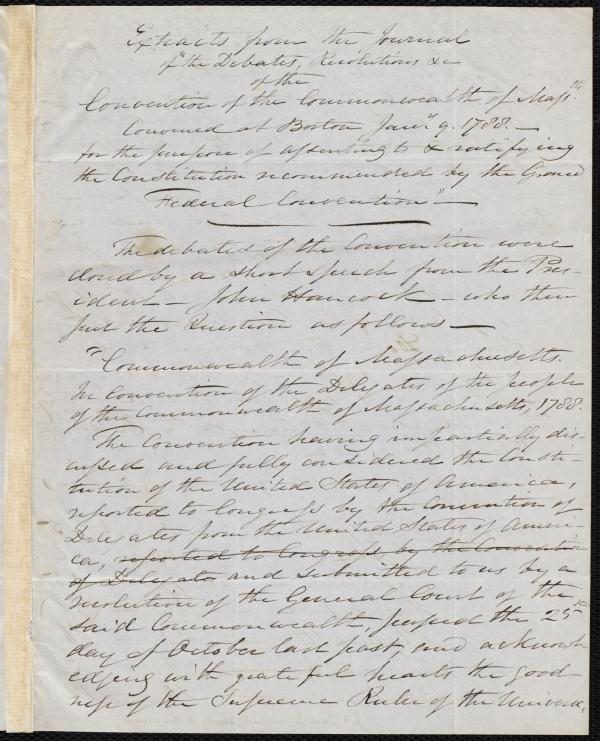 "Extracts from the Journal
of the Debates, Resolutions &c
of the
Convention of the Commonwealth of Massts.
Convened at Boston Jany. 9. 1788. —
for the purpose of assenting to & ratifying
the Constitution recommended by the Grand
Federal Convention" —
The debates of the Convention were
closed by a short speech from the Pres-
ident — John Hancock — who then
put the Question as follows —
"Commonwealth of Massachusetts.
In Convention of the Delegates of the people
of the Commonwealth of Massachusetts, 1788.
The Convention having impartially dis-
cussed and fully considered the Consti-
tution of the United States of America,
reported to Congress by the Convention of
Delegates from the United States of Ameri-
ca, reported to Congress, by the Convention
of Delegates and submitted to us by a
resolution of the General Court of the
said Commonwealth, passed the 25th
day of October last past, and acknowl
edging with grateful hearts the good-
ness of the Supreme Ruler of the Universe,